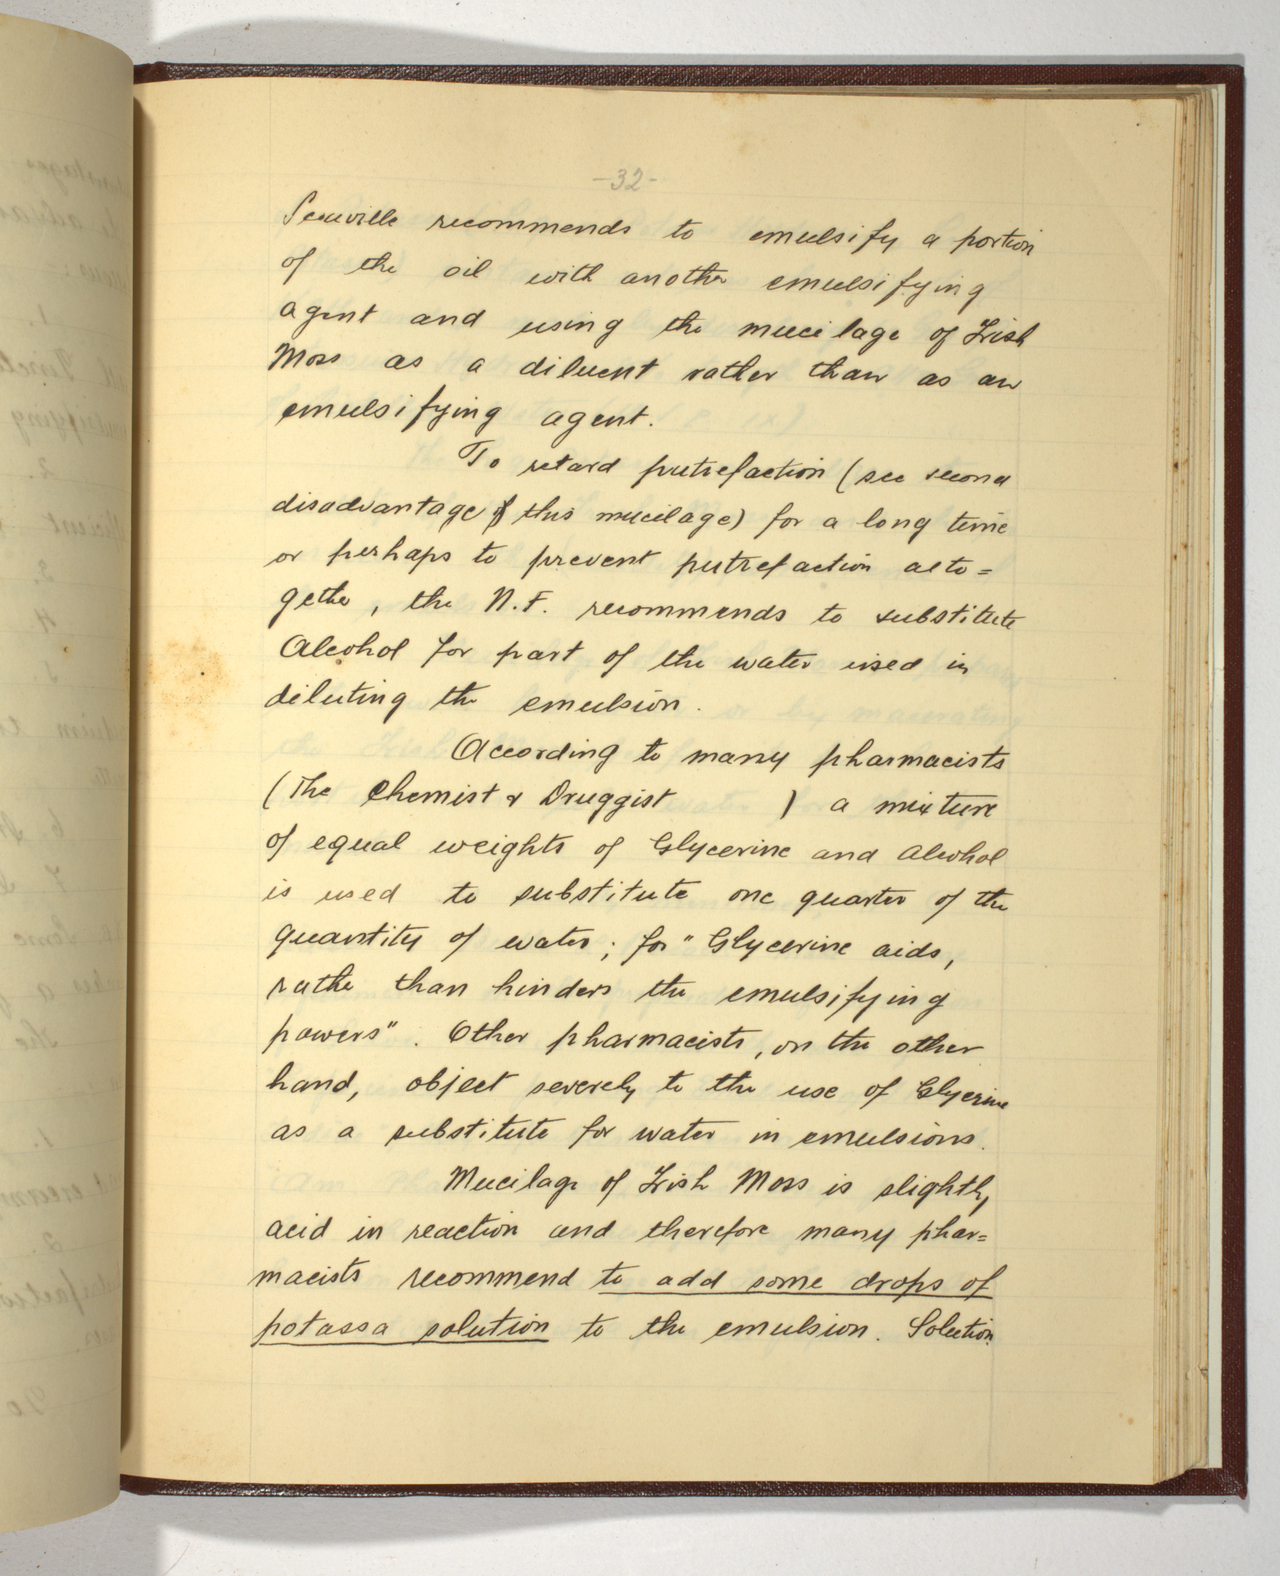 -32-
Scoville recommends to emulsify a portion
of the oil with another emulsifying
agent and using the mucilage of Irish
Moss as a diluent rather than as an
emulsifying agent.
To retard putrefaction (see second
disadvantage of this mucilage) for a long time
or perhaps to prevent putrefaction alto=
gether, the N.F. recommends to substitute
Alcohol for part of the water used in
diluting the emulsion.
According to many pharmacists
(The Chemist & Druggist ) a mixture
of equal weights of Glycerine and Alcohol
is used to substitute one quarter of the
quantity of water; for "Glycerine aids,
rather than hinders the emulsifying
powers". Other pharmacists, on the other
hand, object severely to the use of Glycerine
as a substitute for water in emulsions.
Mucilage of Irish Moss is slightly
acid in reaction and therefore many phar=
macists recommend to add some drops of
potassa solution to the emulsion. Solution